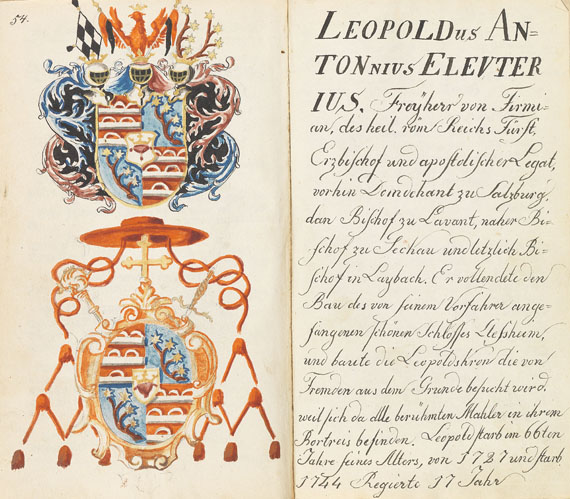 54.
LEOPOLDus AN=
TONnius ELEVTER
IUS. Freÿherr von Firmi=
an, des heil. röm Reichs Fürst,
Erzbischof und apostolischer Legat,
vorhin Domdehant zu Salzburg,
dan Bischof zu Lavant, naher Bi=
schof zu Seckau und letzlich Bi=
schof in Laybach. Er vollendete den
Bau des von seinem Vorfahrer ange=
fangenen schönen Schlosses
und baute die Leopoldskron die von
Fremden aus dem Grunde besucht wird,
weil sich da alle berühmten Mahler in ihrem
befinden. Leopold starb im 66ten
Jahre seines Alters, von 1727 und starb
1744 Regierte 17 Jahr